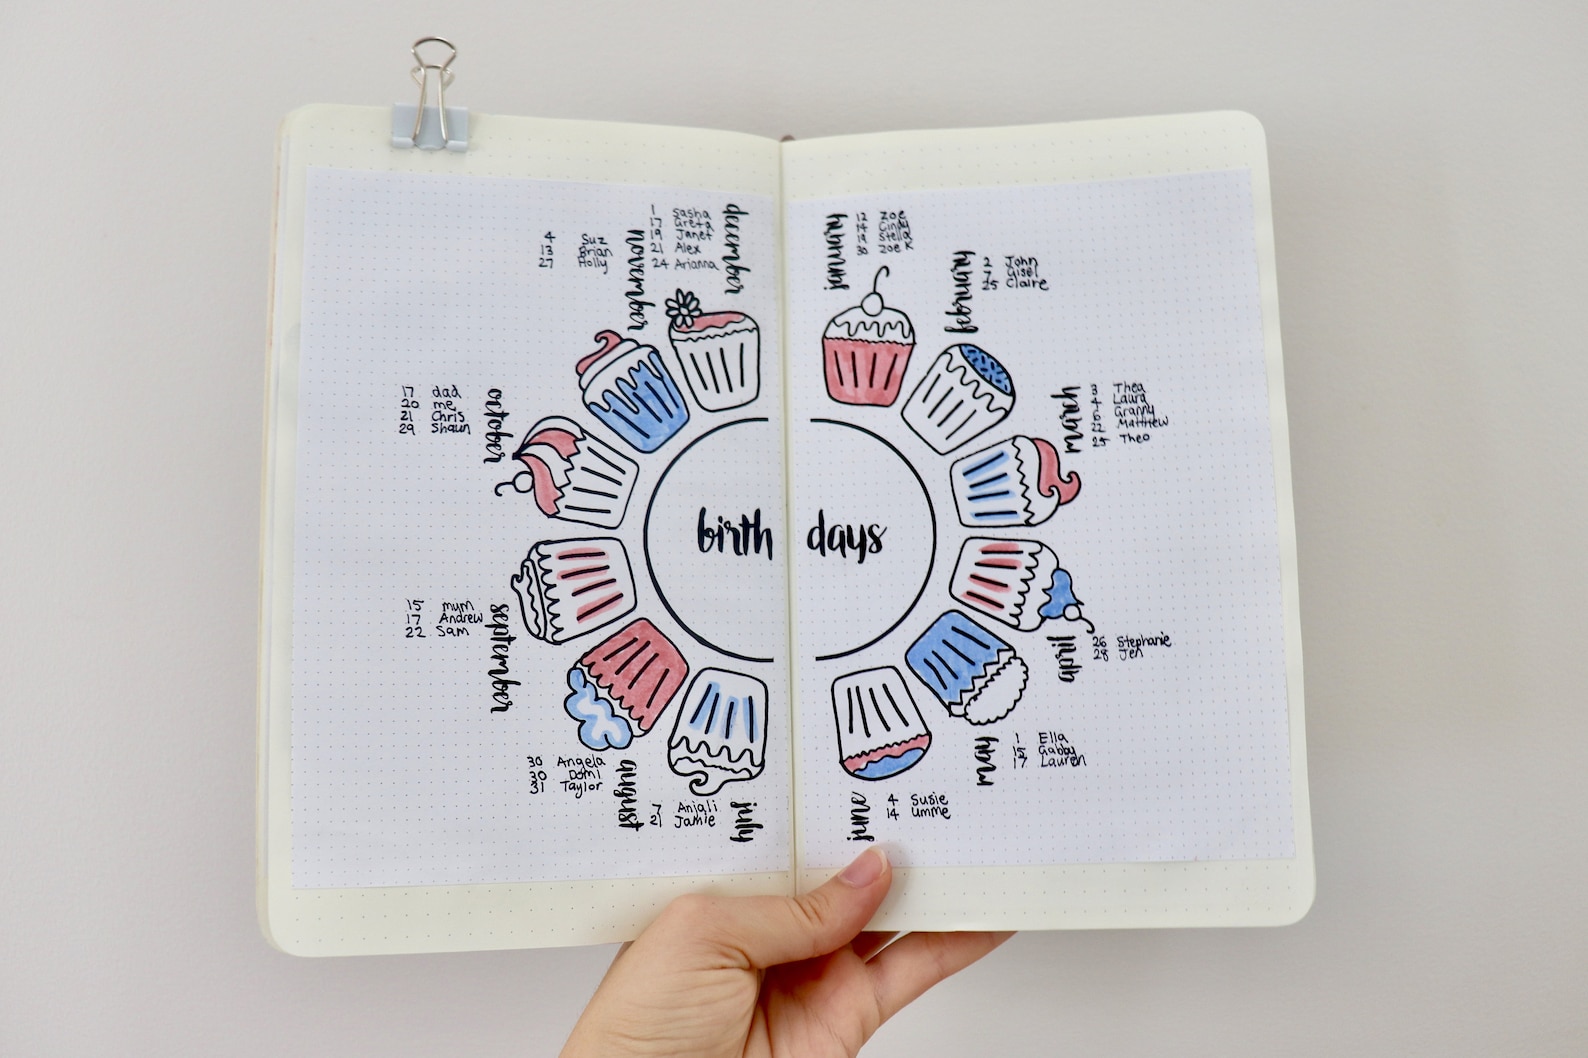 birth days
january
12 Zoe
14 Cindy
19 Stella
30 Zoe K
february
2 John
7 Gisel
25 Claire
march
3 Thea
4 Laura
Granny
22 Matthew
25 Theo
april
26 Stephanie
28 Jen
may
1 Ella
15 Gabby
17 Lauren
june
4 Susie
14 Umme
july
7 Anjali
21 Jamie
august
30 Angela
30 Domi
31 Taylor
september
15 mum
17 Andrew
22 Sam
october
17 dad
20 me
21 Chris
29 Shaun
november
4 Suz
13 Brian
27 Holly
december
1 Sasha
17 Greta
19 Janet
21 Alex
24 Arianna